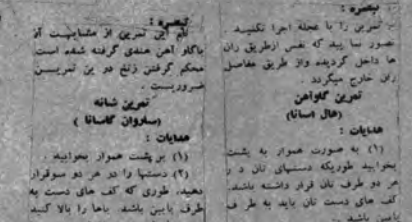 تبصره :
تمرین را با عجله اجرا نکنید.
تصور نمایید که نفس ازطریق ران
ها داخل گردیده واز طریق مفاصل
ران خارج میگردد .
تمرین گاوآهن
(هال اسانا)
هدایات :
(۱) به صورت هموار به پشت
بخوابید طوریکه دستهای تان د ر
هر دو طرف تان قرار داشته باشد.
کف های دست تان باید به طر ف
پایین باشد.
تبصره :
نام این تمرین از مشابهت آن
باگاو آهن هندی گرفته شده است
محکم گرفتن زنخ در ین تمریـــن
ضروریست .
تمرین شانه
(ساروان گاسانا )
هدایات :
(۱) بر پشت هموار بخوابید .
(۲) دستها را در هر دو سوقرار
دهید. طوری که کف های دست به
طرف پایین باشد پاها را بالا کنید